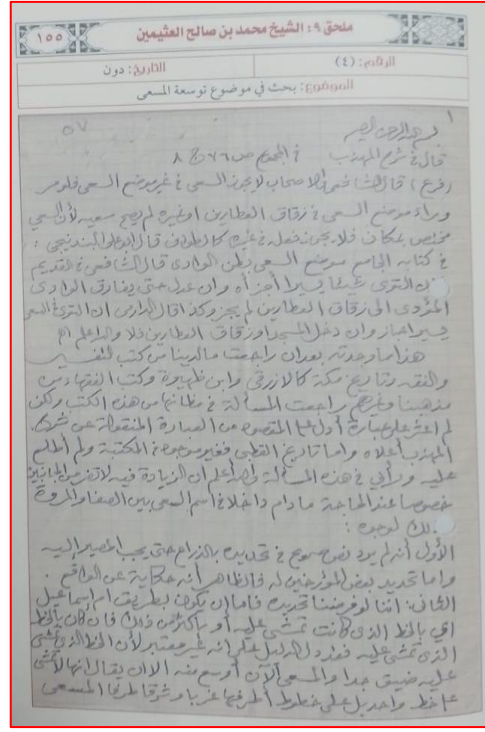 ١٥٥
ملحق ٩: الشيخ محمد بن صالح العثيمين
الرقم: (٤)
التاريخ: دون
الموضوع: بحث في موضوع توسعة المسعى
١
٥٧
بسم الله الرحمن الرحيم
قال في شرح المهذب في المجموع ص ٧٦ ج ٨
(فرع) قال الشافعي والاصحاب لا يجوز السعي في غير موضع السعي فلو مر
وراء موضع السعي في زقاق العطارين او غيره لم يصح سعيه لأن السعي
مختص بمكان فلا يجوز فعله في غيره كالطواف قال ابو علي البندنيجي
في كتابه الجامع موضع السعي بطن الوادي قال الشافعي في القديم
فان التوى شيئا يسيرا أجزأه وان عدل حتى يفارق الوادي
المؤدي الى زقاق العطارين لم يجز وكذا قال الدارمي ان التوى في السعي
يسيرا جاز وان دخل المسجد او زقاق العطارين فلا والله اعلم اهـ
هذا ما وجدته بعد ان راجعت ما لدينا من كتب التفسير
والفقه وتاريخ مكة كالازرقي وابن ظهيرة وكتب الفقهاء من
مذهبنا وغيرهم راجعت المسألة في مظانها من هذه الكتب ولكن
لم اعثر على عبارة أدل على المقصود من العبارة المنقولة عن شرح
المهذب أعلاه واما تاريخ القطبي فغير موجود في المكتبة ولم أطلع
عليه ورأيي في هذه المسألة والله أعلم ان الزيادة فيه لا تضر من الجانبين
خصوصا عند الحاجة ما دام داخلا في اسم السعي بين الصفا والمروة
وذلك لوجوه :
الأول أنه لم يرد نص صريح في تحديده بالذراع حتى يجب المصير إليه
واما تحديد بعض المؤرخين له فالظاهر أنه حكاية عن الواقع .
الثاني: اننا لو فرضنا تحديده فاما ان يكون بطريق ام اسماعيل
اي بالخط الذي كانت تمشي عليه أو بأكثر من ذلك فان كان بالخط
الذي تمشي عليه فقد دل الدليل على أنه غير معتبر لأن الخط الذي تمشي
عليه ضيق جدا والمسعى الآن أوسع منه الا ان يقال انها لا تمشي
على خط واحد بل على خطوط أطرفها غربا وشرقا طرفا المسعى